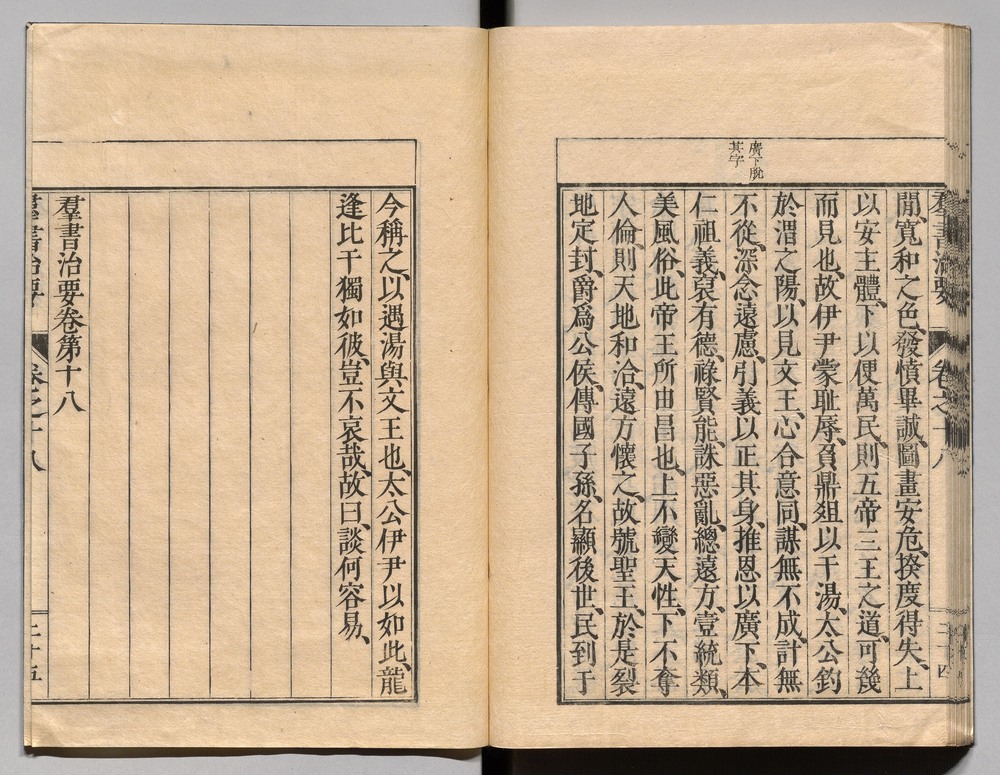 羣書治要 卷之十八 二十四
廣下脫
其字
閒、寬和之色、發憤畢誠、圖畫安危、揆度得失、上
以安主體、下以便萬民、則五帝三王之道、可幾
而見也、故伊尹蒙耻辱、負鼎俎以干湯、太公釣
於渭之陽、以見文王、心合意同、謀無不成、計無
不從、深念遠慮、引義以正其身、推恩以廣下、本
仁祖義、裒有德、祿賢能、誅惡亂、總遠方、壹統類、
美風俗、此帝王所由昌也、上不變天性、下不奪
人倫、則天地和洽、遠方懷之、故號聖王、於是裂
地定封、爵爲公侯、傳國子孫、名顯後世、民到于
今稱之、以遇湯與文王也、太公伊尹以如此、龍
逢比干獨如彼、豈不哀哉、故曰、談何容易、
羣書治要卷第十八
羣書治要 卷之十八 二十五